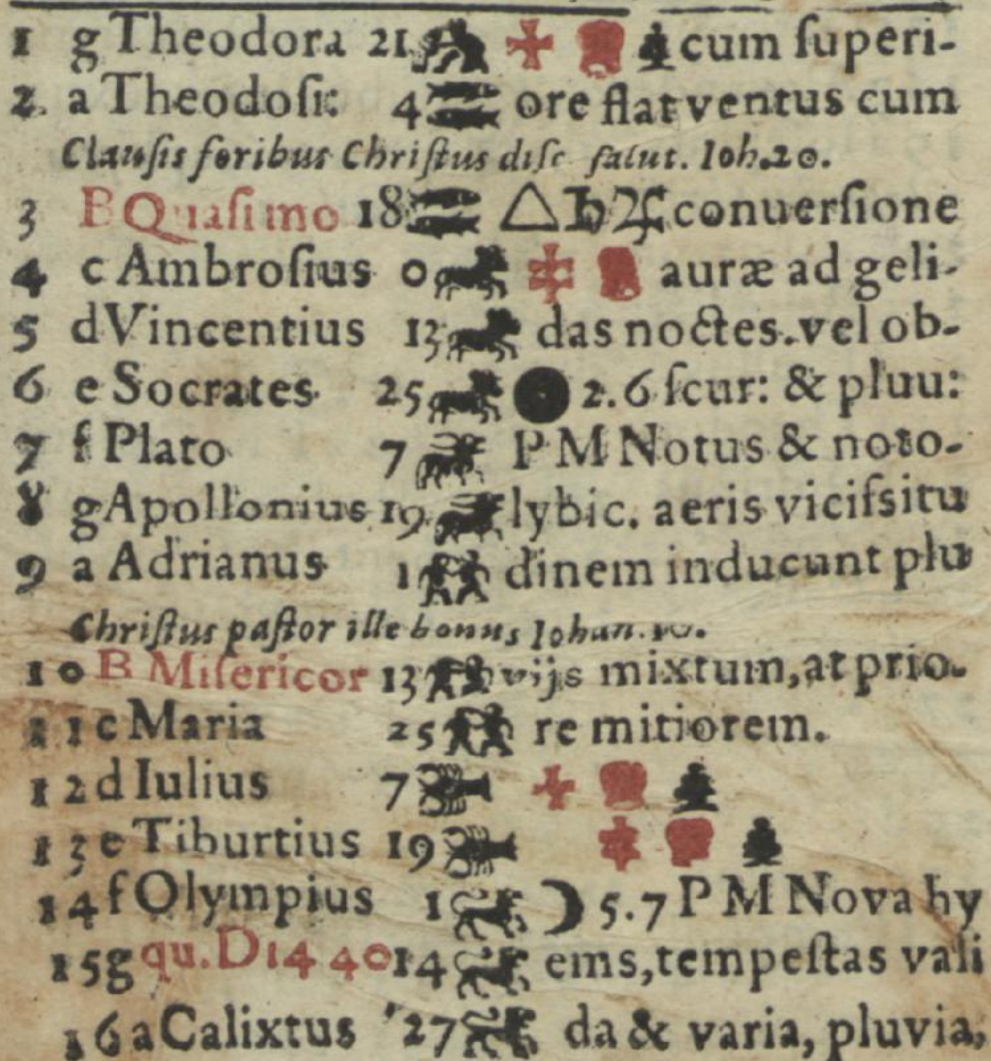 1 g Theodora 21 cum ſuperi-
2. a Theodoſi: 4 ore flat ventus cum
Clauſis foribus Chriſtus diſc ſalut. Ioh.20.
3 B Quaſimo 18 △♄♃ conuerſione
4 c Ambroſius 0 auræ ad geli-
5 d Vincentius 13 das noctes. vel ob-
6 e Socrates 25 2.6 ſcur: & pluu:
7 f Plato 7 P M Notus & noto-
8 g Apollonius 19 lybic. aeris viciſsitu
9 a Adrianus 1 dinem inducunt plu
Chriſtus paſtor ille bonus Iohan. 10.
10 B Miſericor 13 vijs mixtum, at prio-
11 c Maria 25 re mitiorem.
12 d Iulius 7
13 e Tiburtius 19
14 f Olympius 1 ☽ 5.7 P M Nova hy
15 g qu. D14 40 14 ems, tempeſtas vali
16 a Calixtus 27 da & varia, pluvia,